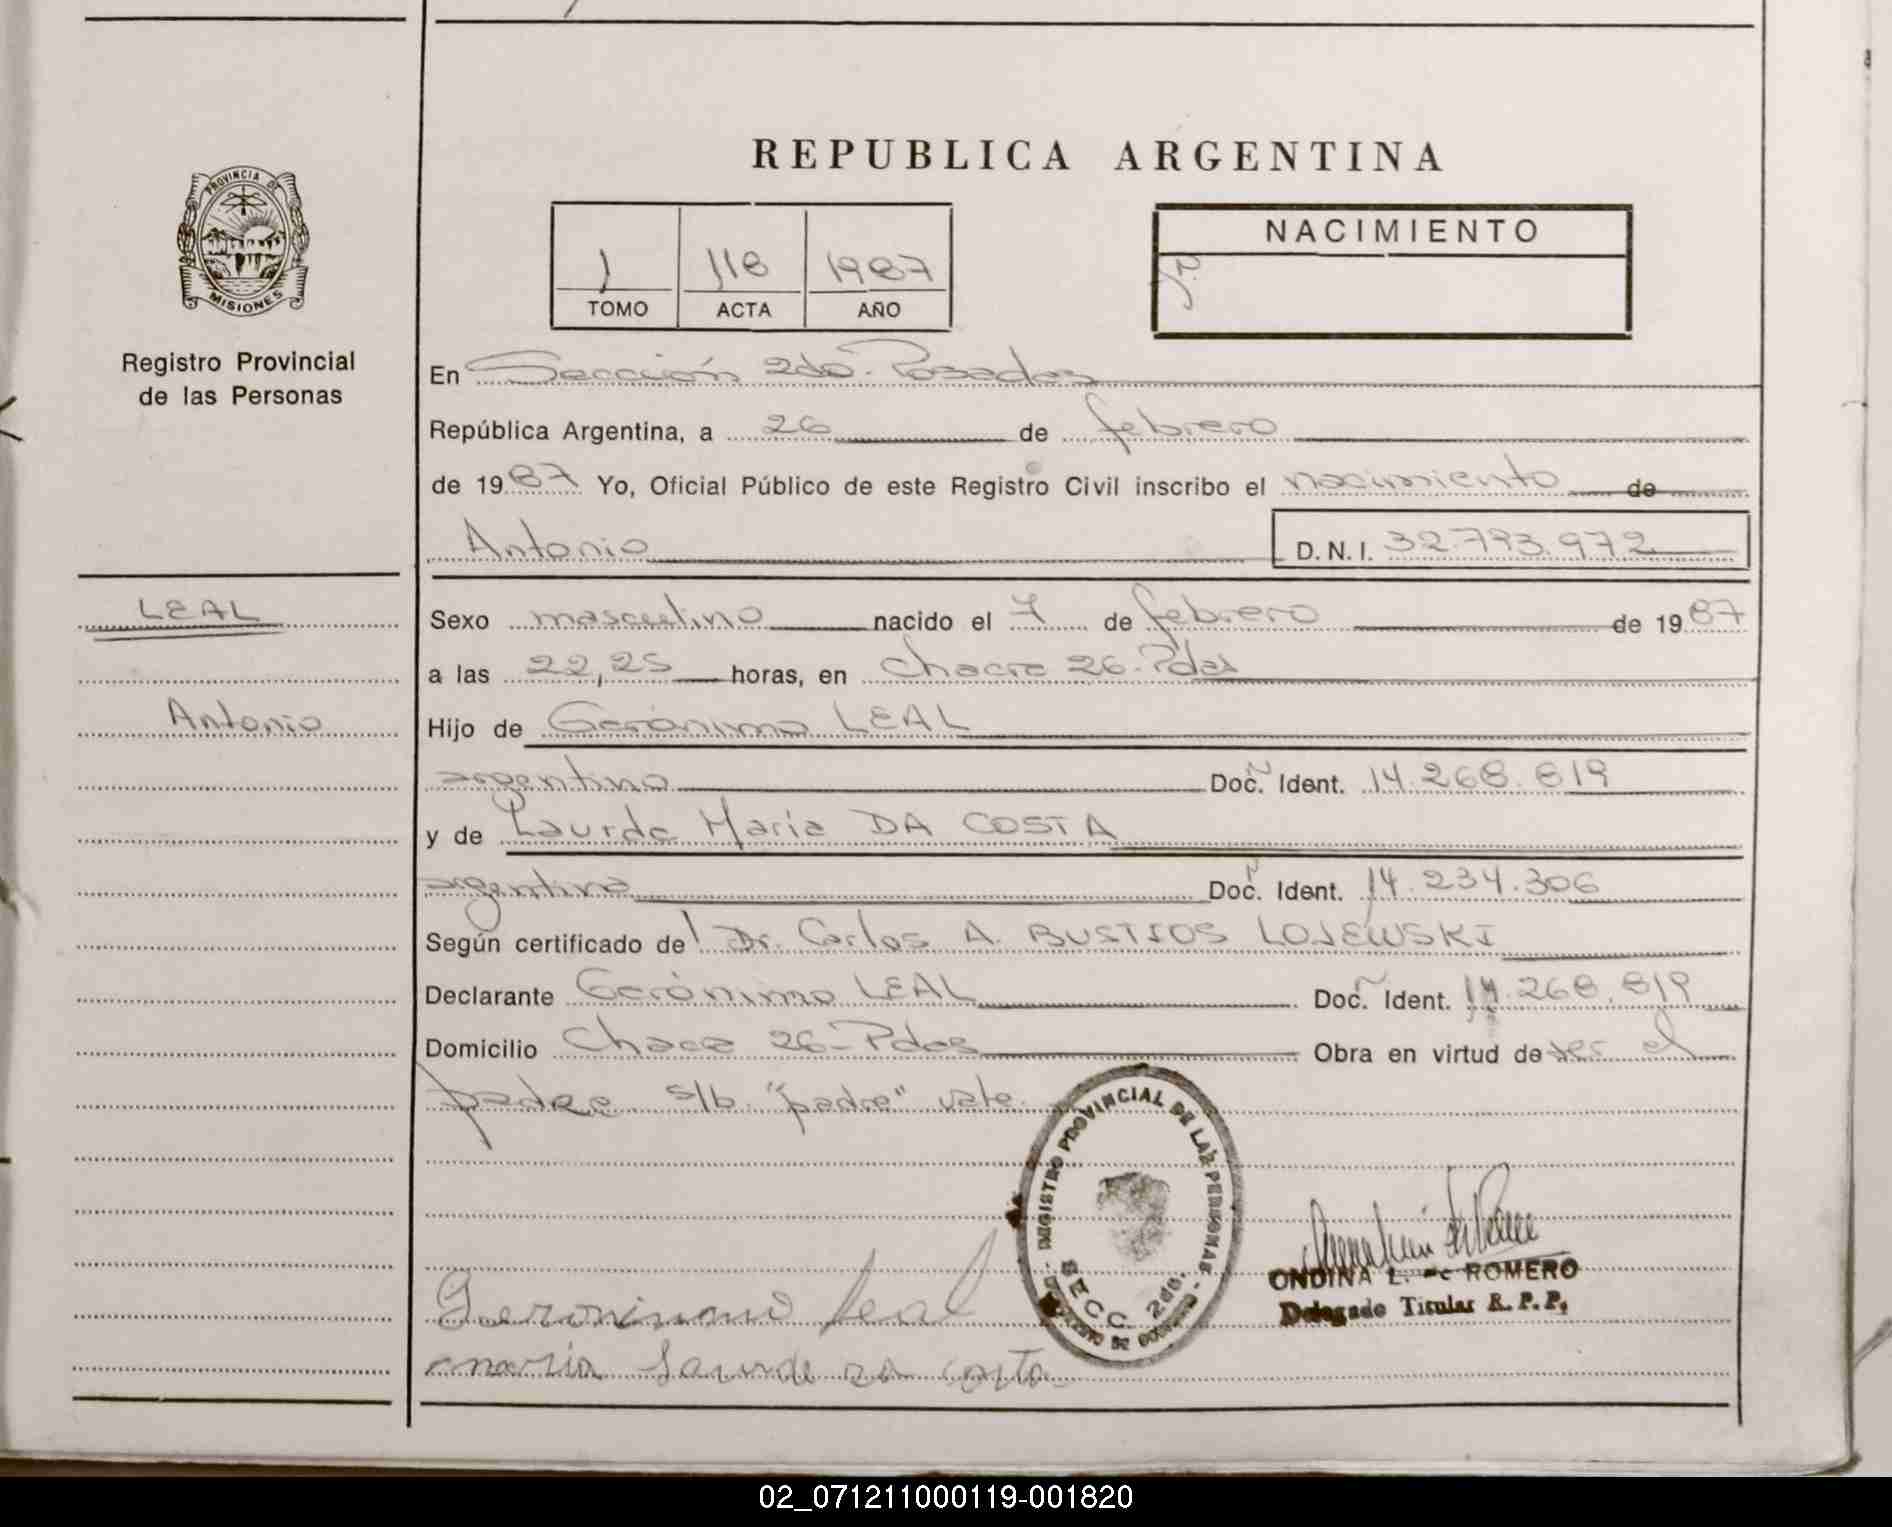 REPUBLICA ARGENTINA
PROVINCIA DE
MISIONES
Registro Provincial
de las Personas
1 118 1987
TOMO ACTA AÑO
NACIMIENTO
En Sección 2da. Posadas
República Argentina, a 26 de febrero
de 1987 Yo, Oficial Público de este Registro Civil inscribo el nacimiento de
Antonio D.N.I. 32.793.972
LEAL
Sexo masculino nacido el 7 de febrero de 1987
a las 22,25 horas, en Chacra 26-Pdas
Antonio
Hijo de Gerónimo LEAL
argentino Doc. Ident. 14.268.819
y de Laurda María DA COSTA
argentina Doc. Ident. 14.234.306
Según certificado de Dr. Carlos A. BUSTIOS LOJEWSKI
Declarante Gerónimo LEAL Doc. Ident. 14.268.819
Domicilio Chacra 26-Pdas Obra en virtud de ser el
padre s/b "padre" vale.
REGISTRO PROVINCIAL DE LAS PERSONAS
SECC. 2da.
ONDINA L. de ROMERO
Delegado Titular R. P. P.
Geronimo Leal
maria Laurda
02_071211000119-001820